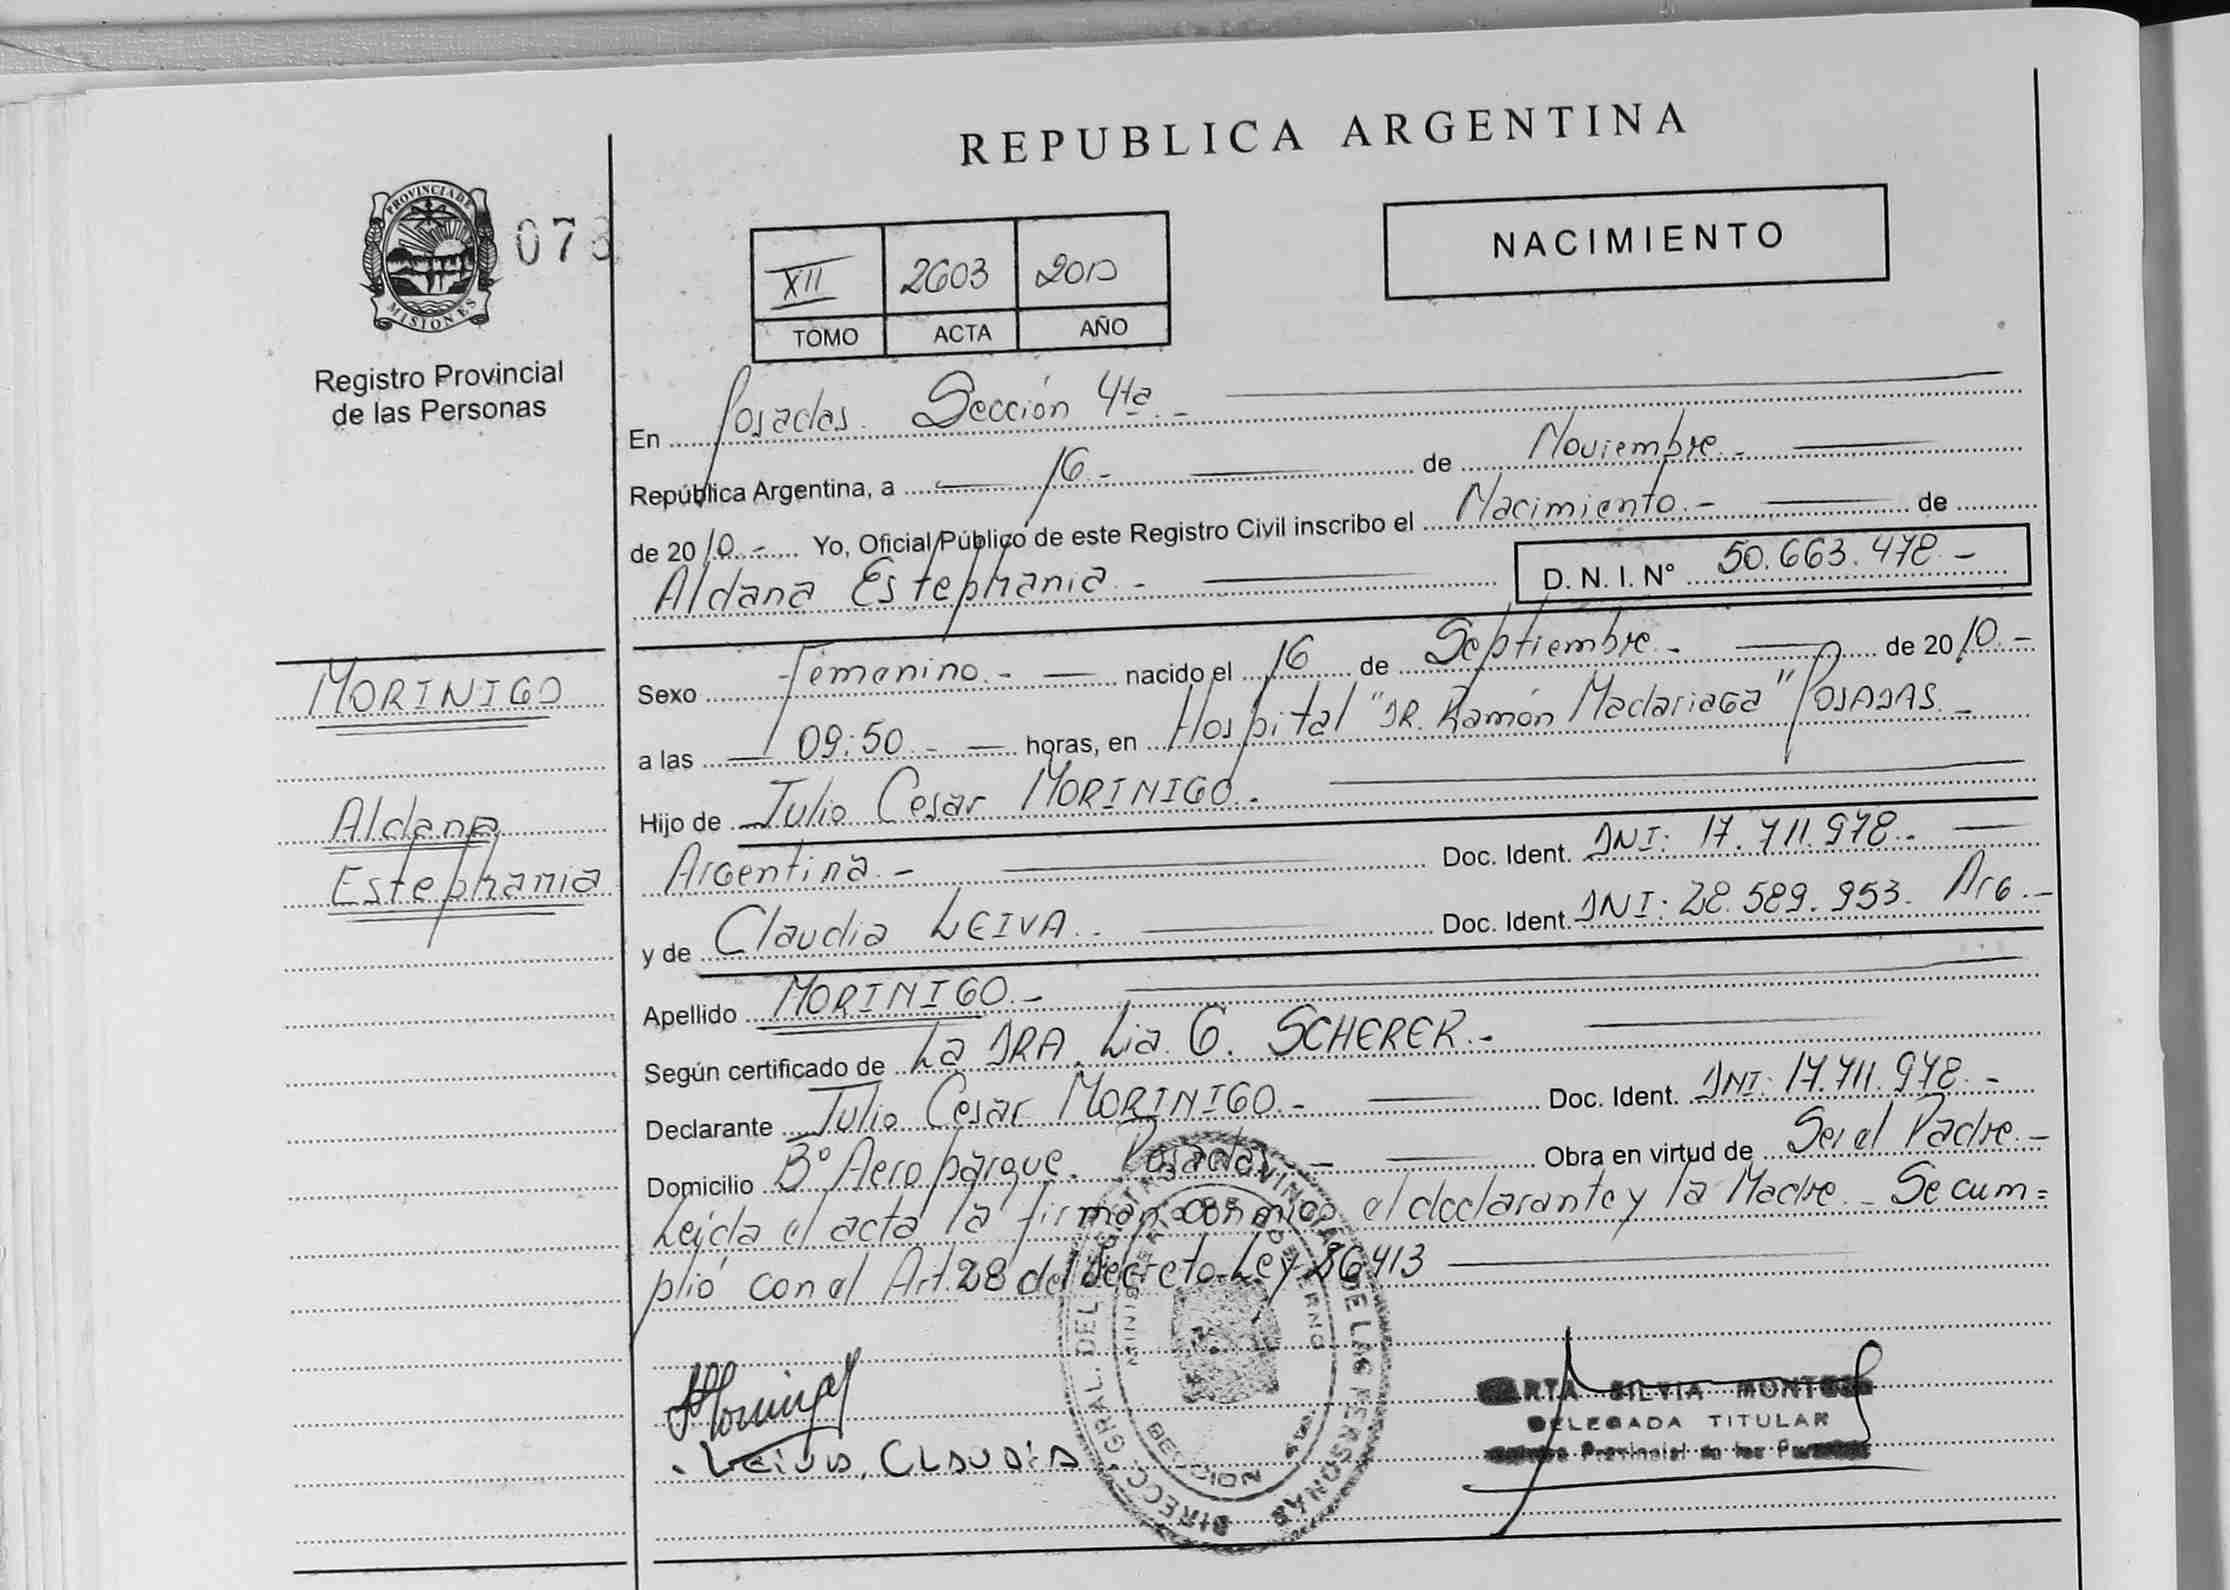 REPUBLICA ARGENTINA
PROVINCIA DE
MISIONES
Registro Provincial
de las Personas
NACIMIENTO
XII 2603 2010
TOMO ACTA AÑO
En Posadas. Sección 4ta.-
República Argentina, a 16.- de Noviembre.-
de 2010.- Yo, Oficial Público de este Registro Civil inscribo el Nacimiento.- de
Aldana Estephania.- D. N. I. Nº 50.663.478.-
MORINIGO
Aldana
Estephania
Sexo Femenino.- nacido el 16 de Septiembre.- de 2010.-
a las 09:50.- horas, en Hospital "DR. Ramón Madariaga" POSADAS.-
Hijo de Julio Cesar MORINIGO.
Argentina.- Doc. Ident. DNI: 17.711.978.-
y de Claudia LEIVA.. Doc. Ident. DNI: 28.589.953. Arg.-
Apellido MORINIGO.-
Según certificado de La DRA. Lia. G. SCHERER.-
Declarante Julio Cesar MORINIGO.- Doc. Ident. DNI: 17.711.978.-
Domicilio Bº Aeroparque. Posadas.- Obra en virtud de Ser el Padre.-
Leida el acta la firman conmigo el declarante y la Madre.- Se cum=
plió con el Art. 28 del Decreto Ley 26413
Leiva, CLAUDIA
DIRECC. GRAL. DEL REGISTRO PROVINCIAL DE LAS PERSONAS
MINISTERIO DE GOBIERNO
SILVIA
DELEGADA TITULAR
Provincial de las Personas